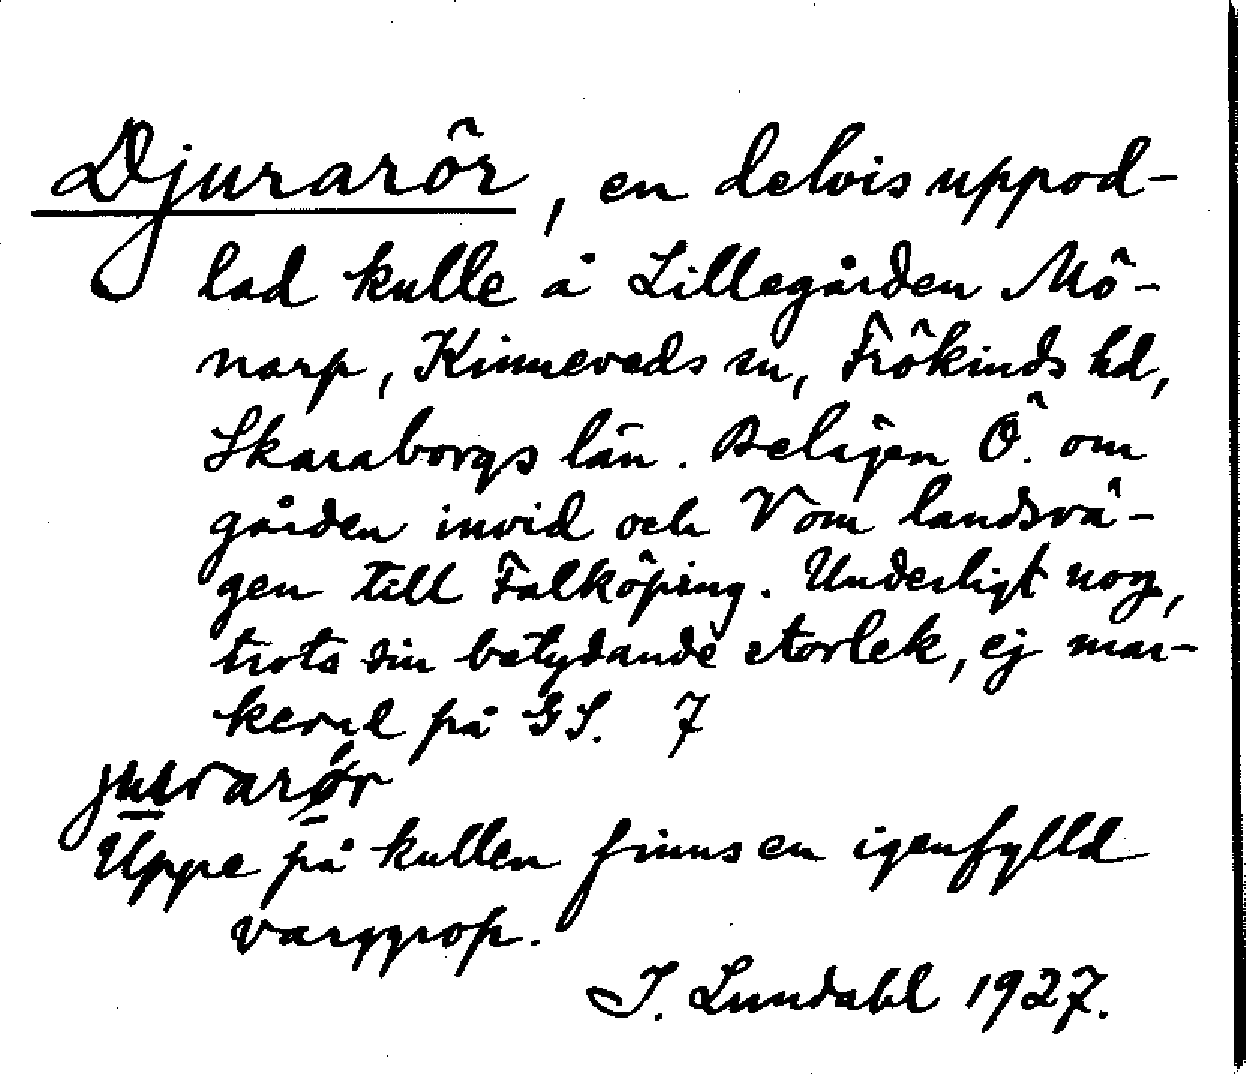 Djurarör, en delvis uppod-
lad kulle å Lillegården Mö-
narp, Kinneveds sn, Frökinds hd,
Skaraborgs län. Belägen Ö. om
gården invid och V om landsvä-
gen till Falköping. Underligt nog,
trots sin betydande storlek, ej mar-
kerad på GS. 7
jurarör
Uppe på kullen finns en igenfylld
varggrop.
I. Lundahl 1927.